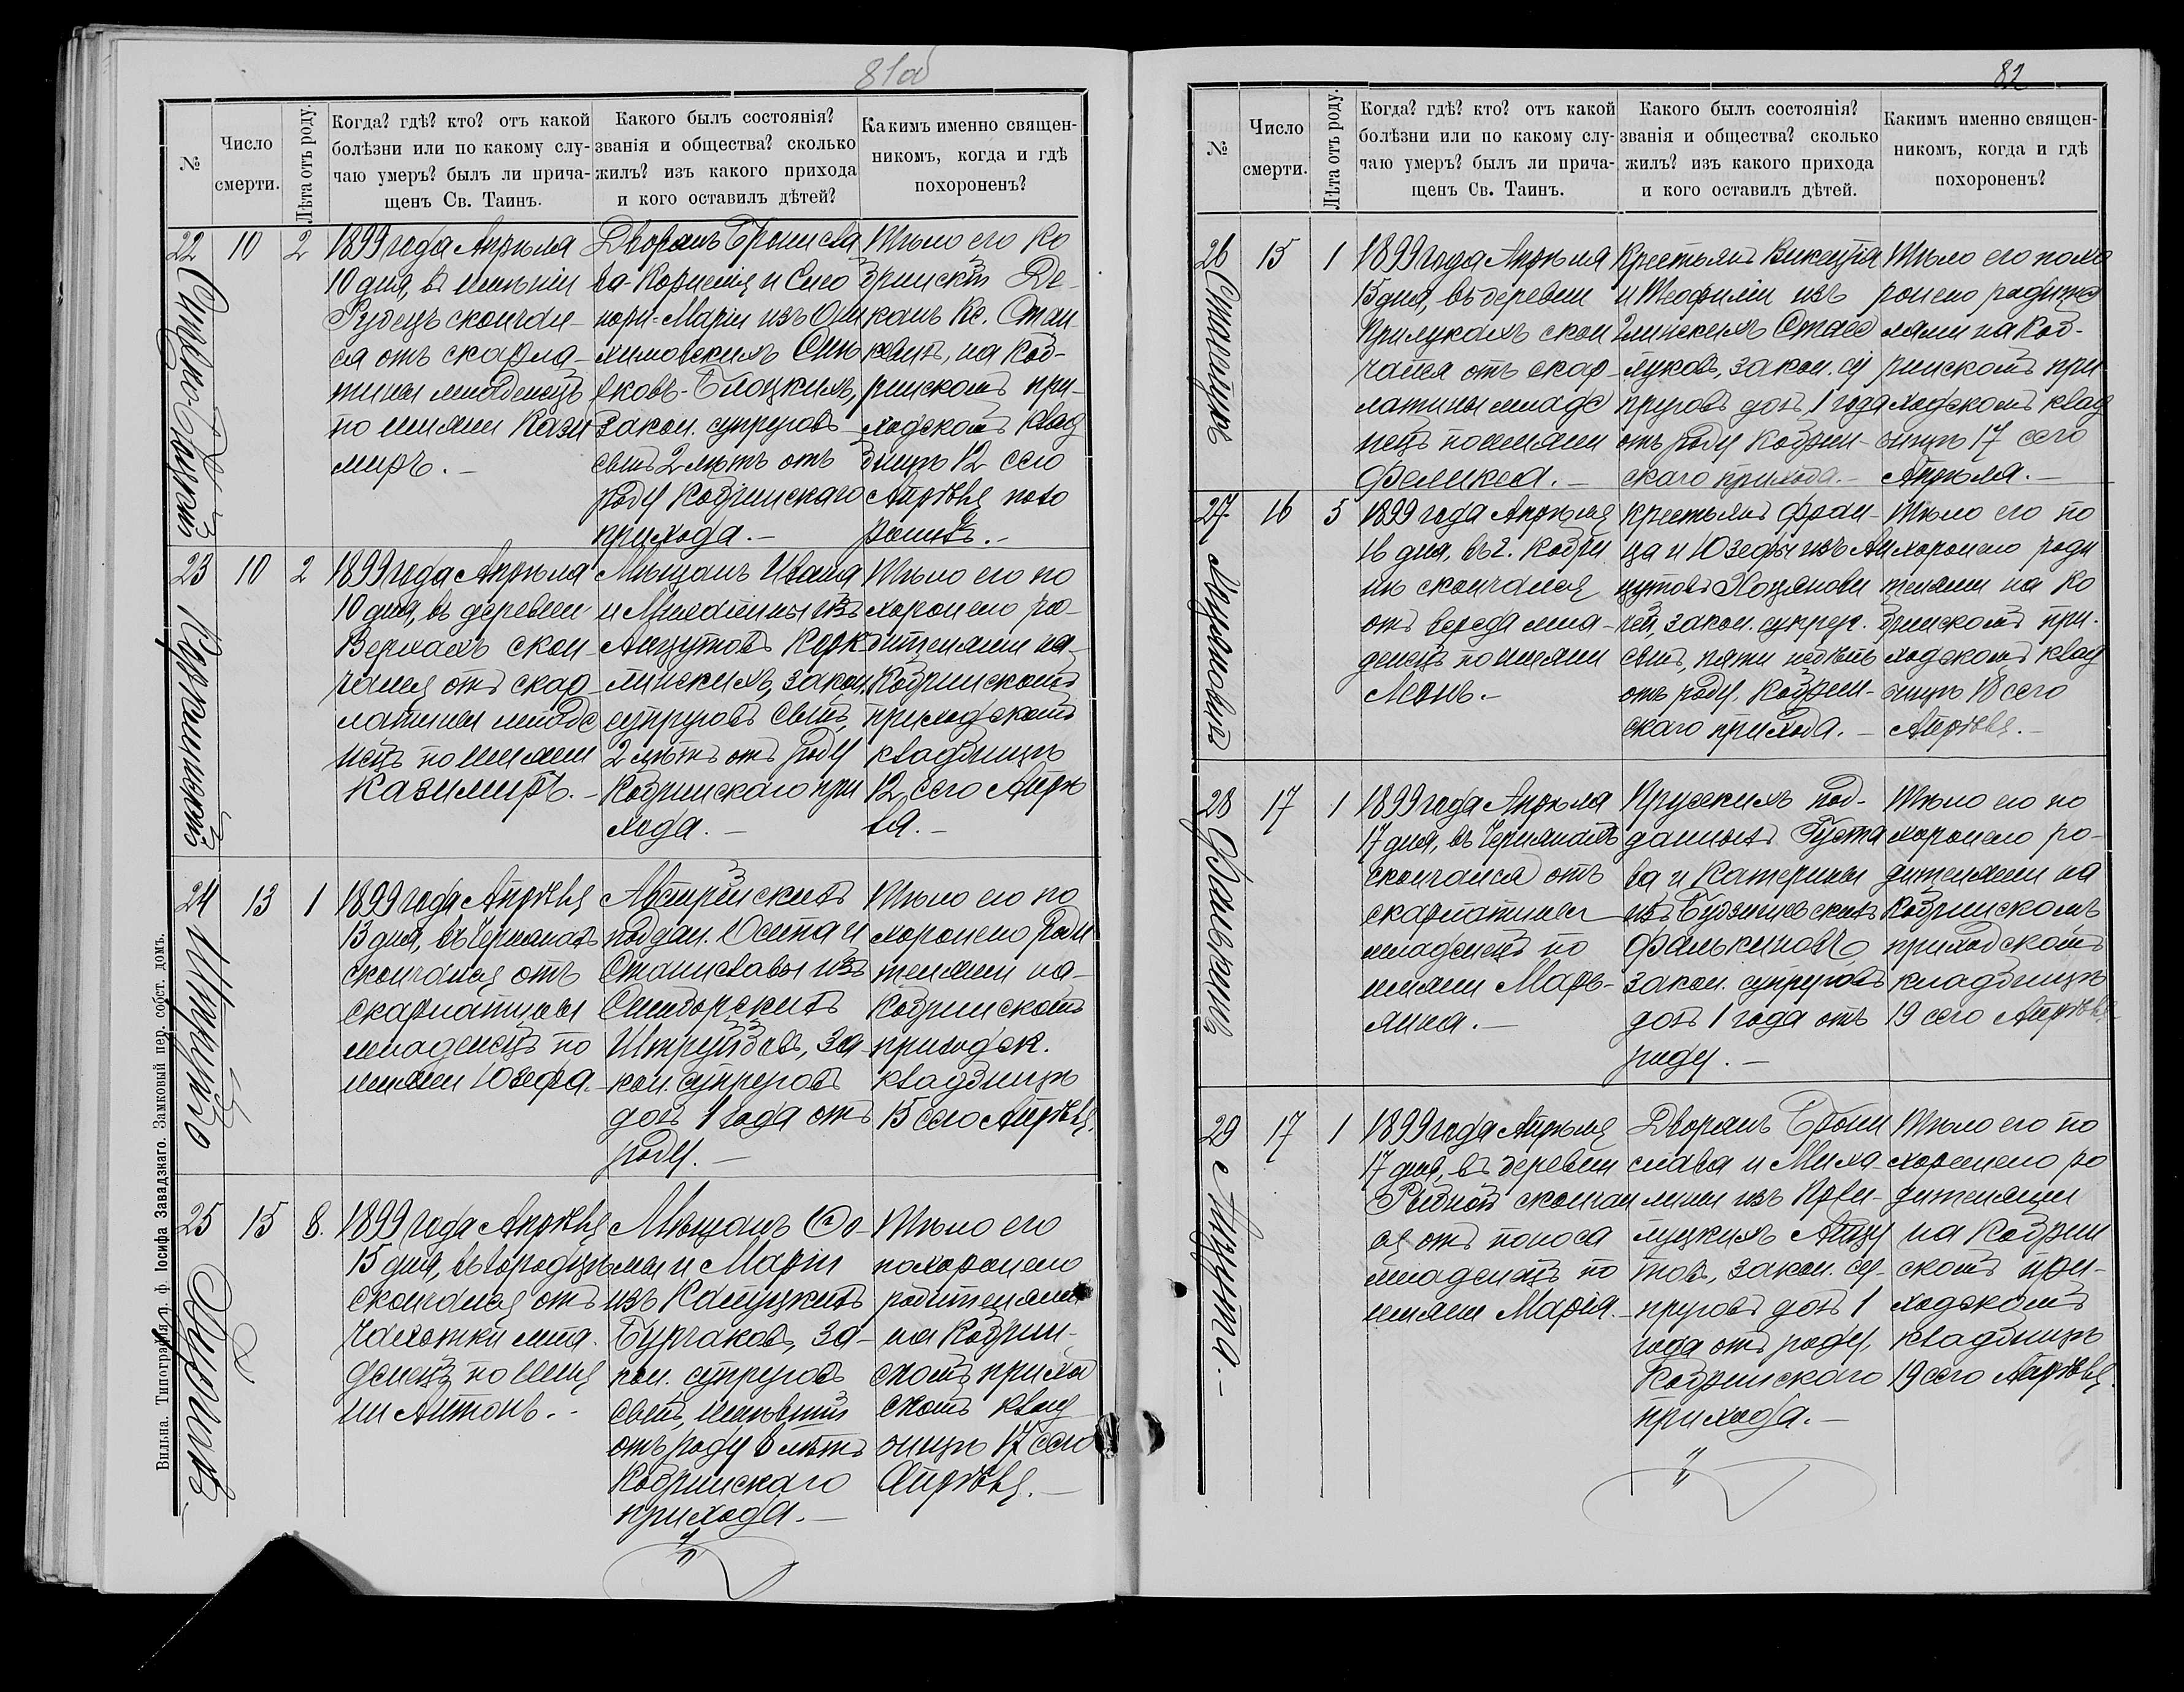 81об
№
Число
смерти.
Лѣта отъ роду.
Когда? гдѣ? кто? отъ какой
болѣзни или по какому слу-
чаю умеръ? былъ ли прича-
щенъ Св. Таинъ.
Какого былъ состоянія?
званія и общества? сколько
жилъ? изъ какого прихода
и кого оставилъ дѣтей?
Какимъ именно священ-
никомъ, когда и гдѣ
похороненъ?
22
10
2
1899 года Апрѣля
10 дня, въ имѣніи
Рудецъ скончал-
ся отъ скарла-
тины младенецъ
по имени Кази
миръ. -
Дворянъ Бронисла
ва-Корнелія и Елео
норы-Маріи изъ
химовскихъ
законн. супруговъ
сынъ 2 лѣтъ отъ
роду Кобринскаго
прихода. -
Тѣло его Ко
бринскій Де-
канъ Кс. Стан
на Коб-
ринскомъ при-
ходскомъ клад
бищѣ 12 сего
Апрѣля похо
ронилъ. -
23
Корклинскій
10
2
1899 года Апрѣля
10 дня, въ деревни
Верхахъ скон-
чался отъ скар-
латины младе
нецъ по имени
Казимиръ. -
Мѣщанъ Ивана
и Михалины изъ
Анцутовъ Корк
линскихъ, закон.
супруговъ сынъ,
2 лѣтъ отъ роду
Кобринскаго при
хода. -
Тѣло его по
хоронено ро-
дителями на-
Кобринскомъ
приходскомъ
кладбищѣ
12 сего Апрѣ
ля. -
24
13
1
1899 года Апрѣля
13 дня, въ
скончался отъ
скарлатины
младенецъ по
имени Юзефа.
Австрійскихъ
поддан. Осипа и
Станиславы изъ
за-
кон. супруговъ
дочь 1 года отъ
роду. -
Тѣло его по
хоронено роди
телями на-
Кобринскомъ
приходск.
кладбищѣ
15 сего Апрѣля.
25
15
8.
1899 года Апрѣля
15 дня, въ Городцѣ
скончался отъ
чахотки мла-
денецъ по имe
ни Антонъ. -
Мѣщанъ Ѳо-
мы и Маріи
изъ
за-
кон. супруговъ
сынъ, имѣвшій
отъ роду 8 лѣтъ
Кобринскаго
прихода. -
Тѣло его
похоронено
родителями
на Кобрин-
скомъ прихо
скомъ клад
бищѣ 17 сего
Апрѣля. -
Вильна. Типографія п. ф. Іосифа Завадзкаго. Замковый пер. собст. домъ.
82
№
Число
смерти.
Лѣта отъ роду.
Когда? гдѣ? кто? отъ какой
болѣзни или по какому слу-
чаю умеръ? былъ ли прича-
щенъ Св. Таинъ.
Какого былъ состоянія?
званія и общества? сколько
жилъ? изъ какого прихода
и кого оставилъ дѣтей.
Какимъ именно священ-
никомъ, когда и гдѣ
похороненъ?
26
15
1
1899 года Апрѣля
15 дня, въ деревни
Прилукахъ скон
чался отъ скар-
латины младе
нецъ по имени
Феликса. -
Крестьянъ Викентія
и Теофиліи изъ
законн. су
пруговъ дочь, 1 года
отъ роду Кобрин-
скаго прихода. -
Тѣло его похо
ронено родите
лями на Коб-
ринскомъ при
ходскомъ клад
бищѣ 17 сего
Апрѣля. -
27
16
5
1899 года Апрѣля
16 дня, въ г. Кобри
нѣ скончался
отъ вереда мла-
денецъ по имени
Крестьянъ Фран-
ца и Юзефы изъ Ан
цутовъ
законн. супруг.
сынъ, пяти недѣль
отъ роду, Кобрин-
скаго прихода. -
Тѣло его по
хоронено роди
телями на Ко
бринскомъ при-
ходскомъ клад
бищѣ 18 сего
Апрѣля. -
28
Фалькинъ
17
1
1899 года Апрѣля
17 дня, въ
скончался отъ
скарлатины
младенецъ по
имени Марь-
янна. -
Прускихъ под-
данныхъ Густа
ва и Катерины
изъ
Фалькиновъ,
закон. супруговъ
дочь 1 года отъ
роду. -
Тѣло его по
хоронено ро-
дителями на
Кобринскомъ
приходскомъ
кладбищѣ
19 сего Апрѣля
29
Анцута. -
17
1
1899 года Апрѣля
17 дня, въ деревни
скончал
ся отъ поноса
младенецъ по
имени Марія. -
Дворянъ Брони
слава и Миха-
лины изъ
Анцу
товъ, закон. су-
пруговъ дочь 1
года отъ роду,
Кобринскаго
прихода. -
Тѣло его по
хоронено ро
дителями
на Кобрин
скомъ при-
ходскомъ
кладбищѣ
19 сего Апрѣля.